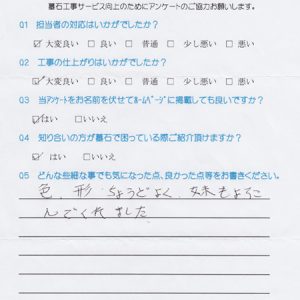 墓石工事サービス向上のためにアンケートのご協力お願いします。
Q1 担当者の対応はいかがでしたか?
☑大変良い □良い □普通 □少し悪い □悪い
Q2 工事の仕上がりはいかがでしたか?
☑大変良い □良い □普通 □少し悪い □悪い
Q3 当アンケートをお名前を伏せてホームページに掲載しても良いですか?
☑はい □いいえ
Q4 知り合いの方が墓石で困っている際ご紹介頂けますか?
☑はい □いいえ
Q5 どんな些細な事でも気になった点、良かった点等をお書きください。
色、形ちょうどよく、妹もよろこ
んでくれました